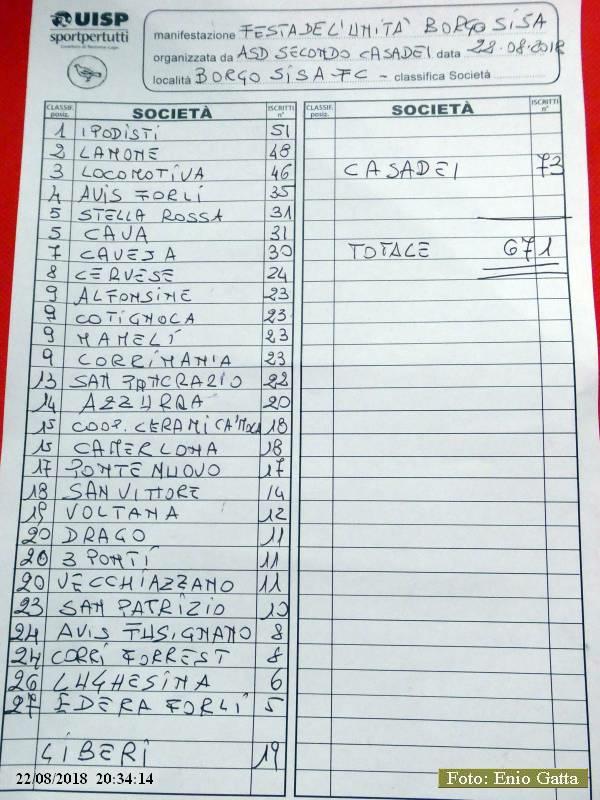 UISP
sportpertutti
manifestazione FESTA DEL'UNITÀ BORGO SISA
organizzata da ASD SECONDO CASADEI data 22.08.2018
località BORGO SISA FC - classifica Società
CLASSIF. posiz. SOCIETÀ ISCRITTI n°
1 IPODISTI 51
2 LAMONE 48
3 LOCOMOTIVA 46
4 AVIS FORLI 35
5 STELLA ROSSA 31
5 CAVA 31
7 CAVEJA 30
8 CERVESE 24
9 ALFONSINE 23
9 COTIGNOLA 23
9 MAMELI 23
9 CORRIMANIA 23
13 SAN PANCRAZIO 22
14 AZZURRA 20
15 COOP. CERAMICA IMOLA 18
15 CAMERLONA 18
17 PONTE NUOVO 17
18 SAN VITTORE 14
19 VOLTANA 12
20 DRAGO 11
20 3 PONTI 11
20 VECCHIAZZANO 11
23 SAN PATRIZIO 10
24 AVIS FUSIGNANO 8
24 CORRI FORREST 8
26 LUGHESINA 6
27 EDERA FORLI 5
LIBERI 19
CLASSIF. posiz. SOCIETÀ ISCRITTI n°
CASADEI 73
TOTALE 671
22/08/2018 20:34:14
Foto: Enio Gatta